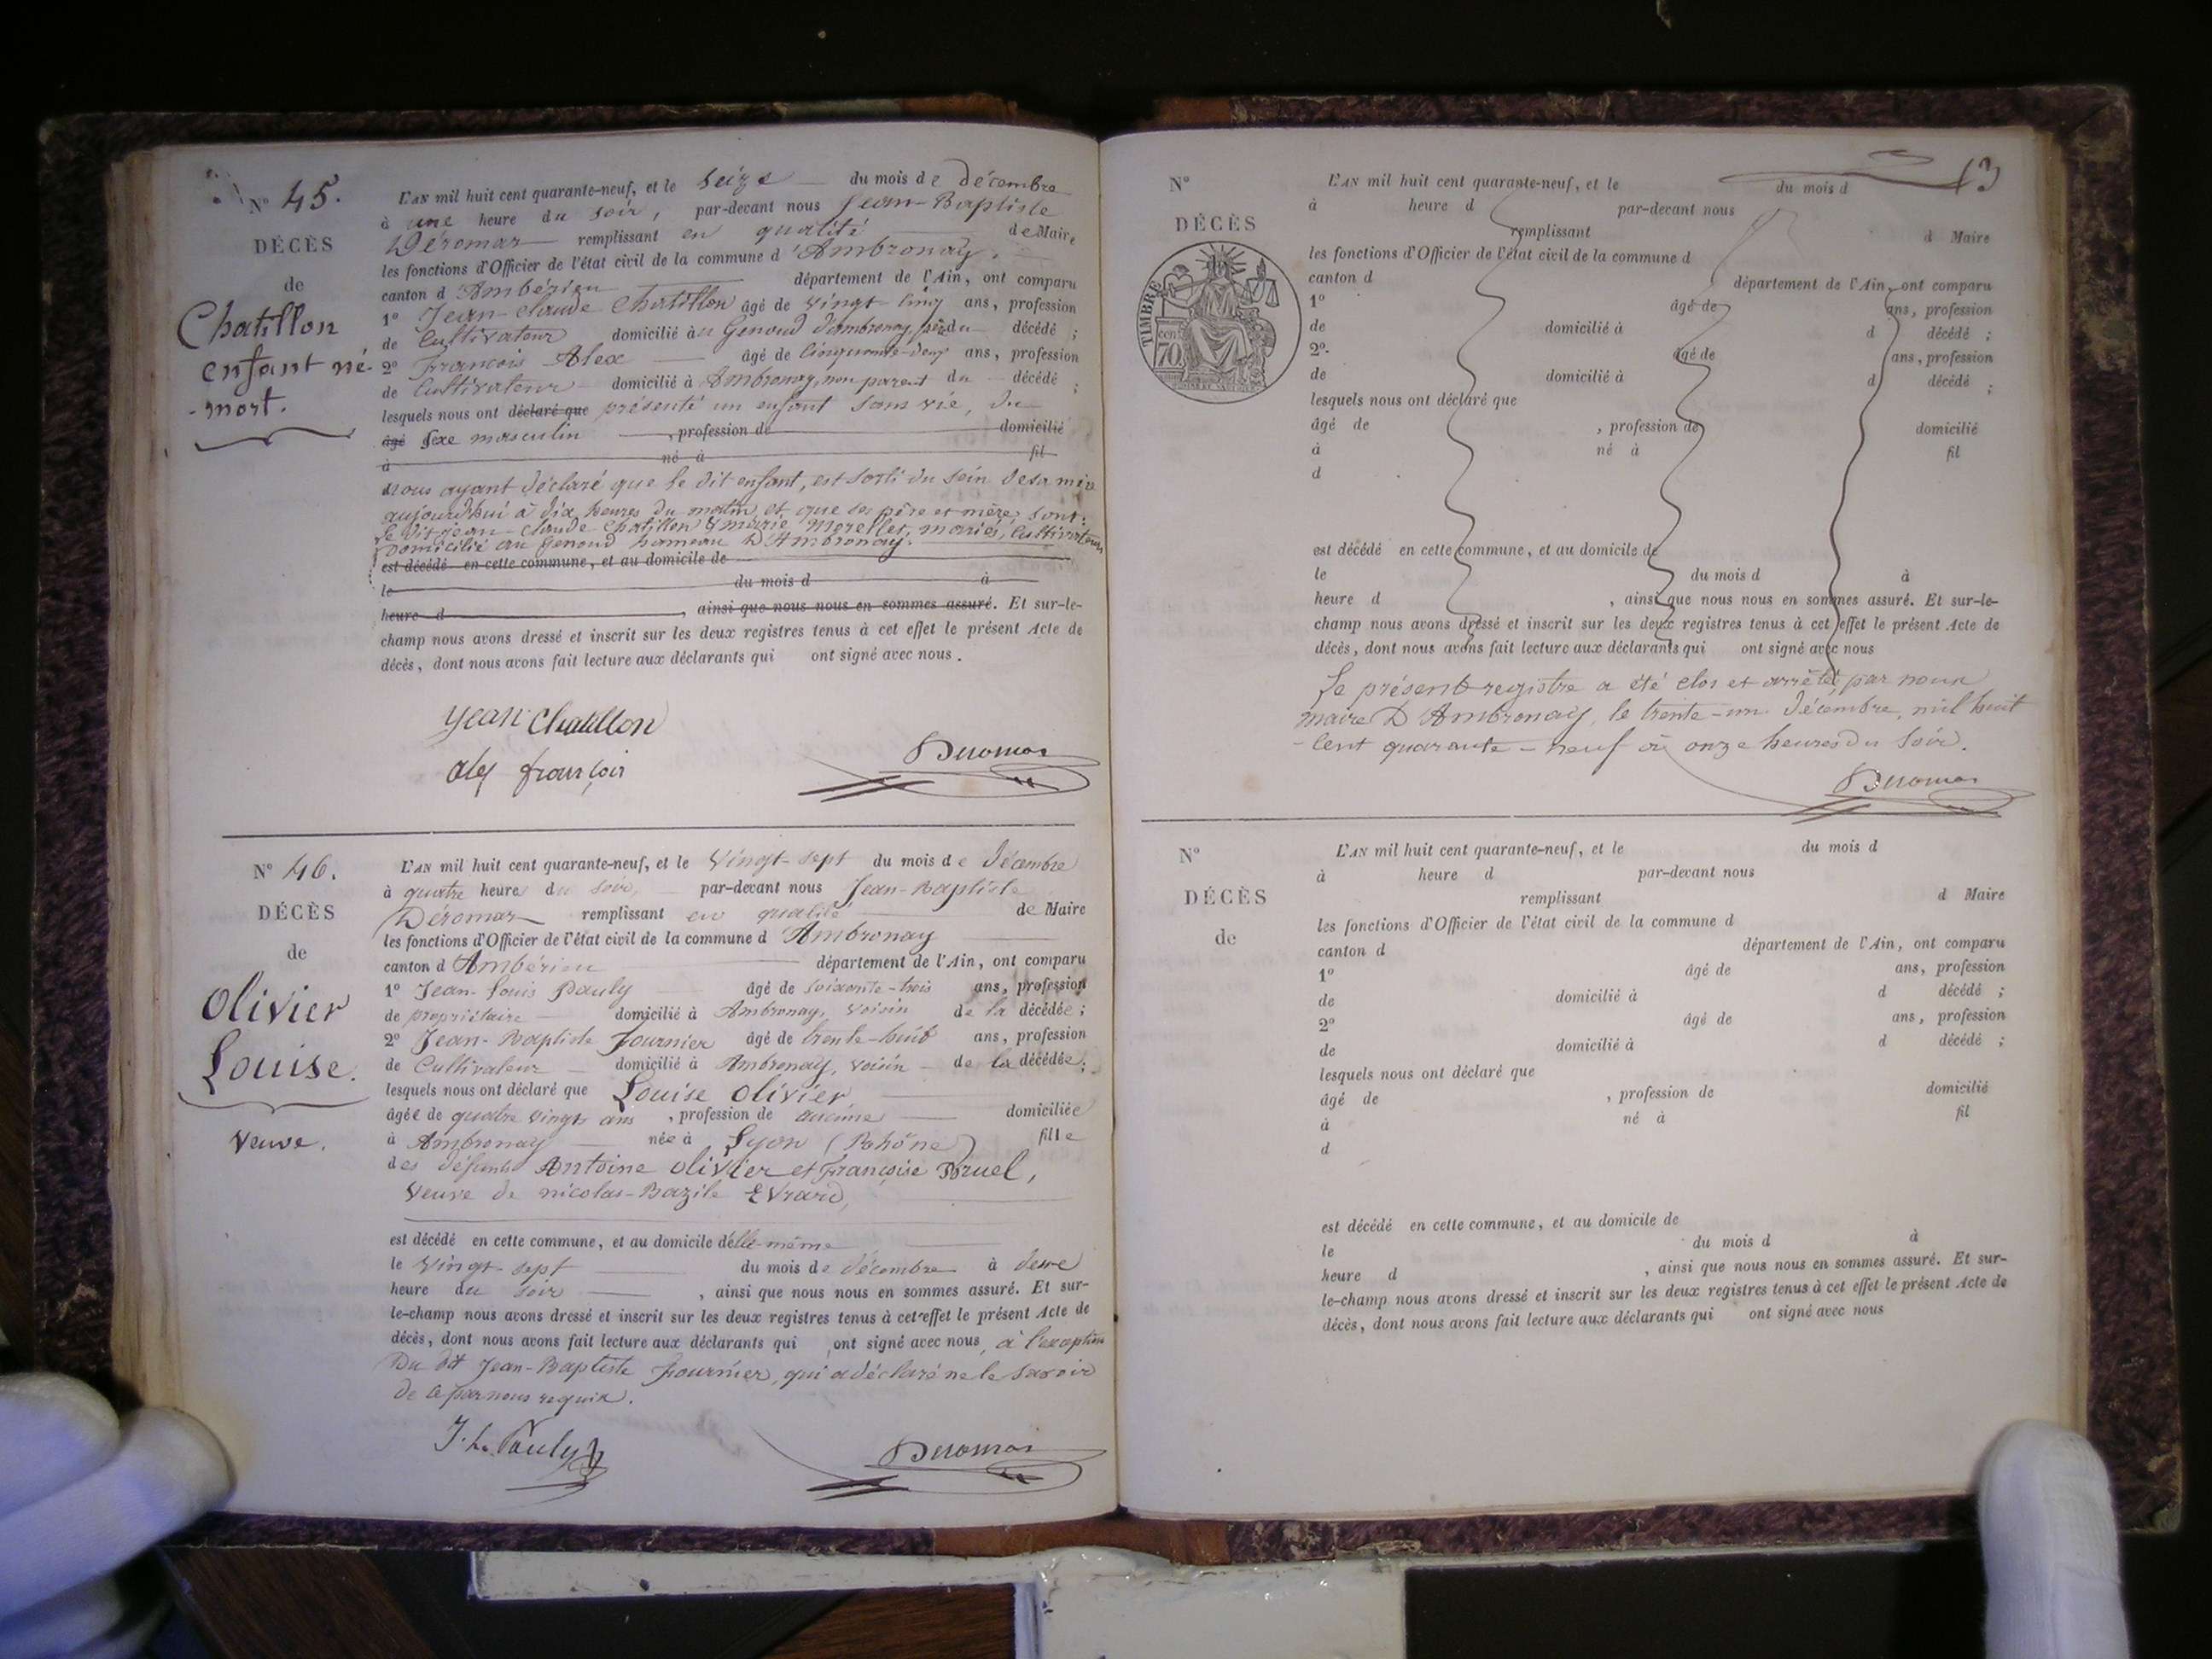 N° 45.
DÉCÈS
de
Chatillon
enfant né-
-mort.
L'AN mil huit cent quarante-neuf, et le Seize du mois de décembre
à une heure du soir, par-devant nous Jean-Baptiste
Déromas remplissant en qualité de Maire
les fonctions d'Officier de l'état civil de la commune d'Ambronay,
canton d'Ambérieu département de l'Ain, ont comparu
1° Jean-Claude Chatillon âgé de vingt-cinq ans, profession
de Cultivateur domicilié au Genoud d'ambronay, père du décédé ;
2° François Alex âgé de Cinquante-deux ans, profession
de Cultivateur domicilié à Ambronay, non parent du décédé ;
lesquels nous ont déclaré que présenté un enfant sans vie, du
âgé Sexe masculin , profession de domicilié
à né à fil
Nous ayant déclaré que le dit enfant, est sorti du sein de sa mère
aujourd'hui à dix heures du matin, et que ses père et mère, sont:
le dit jean-Claude Chatillon & marie Morellet, mariés, Cultivateurs
Domicilié au genoud hameau D'Ambronay.
est décédé en cette commune, et au domicile de
le du mois d à
heure d , ainsi que nous nous en sommes assuré. Et sur-le-
champ nous avons dressé et inscrit sur les deux registres tenus à cet effet le présent Acte de
décès, dont nous avons fait lecture aux déclarants qui ont signé avec nous.
jean Chatillon
alex françois
Deromas
N° 46.
DÉCÈS
de
Olivier
Louise.
Veuve.
L'AN mil huit cent quarante-neuf, et le Vingt-sept du mois de décembre
à quatre heure du soir, par-devant nous Jean-Baptiste
Déromas remplissant en qualité de Maire
les fonctions d'Officier de l'état civil de la commune d'Ambronay
canton d'Ambérieu département de l'Ain, ont comparu
1° Jean-Louis Pauly âgé de soixante-trois ans, profession
de propriétaire domicilié à Ambronay, voisin de la décédée ;
2° Jean-Baptiste Fournier âgé de trente-huit ans, profession
de Cultivateur domicilié à Ambronay, voisin de la décédée ;
lesquels nous ont déclaré que Louise Olivier
âgée de quatre vingts ans , profession de aucune domiciliée
à Ambronay née à Lyon (Rhône) fille
des défunts Antoine Olivier et Françoise Bruel,
Veuve de nicolas-Bazile Evrard,
est décédé en cette commune, et au domicile d'elle-même
le vingt-sept du mois de décembre à deux
heure du soir , ainsi que nous nous en sommes assuré. Et sur-
le-champ nous avons dressé et inscrit sur les deux registres tenus à cet effet le présent Acte de
décès, dont nous avons fait lecture aux déclarants qui ont signé avec nous, à l'exception
Du dit Jean-Baptiste Fournier, qui a déclaré ne le savoir
de ce par nous requis.
J. L. Pauly
Deromas
13
N°
DÉCÈS
TIMBRE
70
L'AN mil huit cent quarante-neuf, et le du mois d
à heure d par-devant nous
remplissant d Maire
les fonctions d'Officier de l'état civil de la commune d
canton d département de l'Ain, ont comparu
1° âgé de ans, profession
de domicilié à d décédé ;
2°. âgé de ans, profession
de domicilié à d décédé ;
lesquels nous ont déclaré que
âgé de , profession de domicilié
à né à fil
d
est décédé en cette commune, et au domicile de
le du mois d à
heure d , ainsi que nous nous en sommes assuré. Et sur-le-
champ nous avons dressé et inscrit sur les deux registres tenus à cet effet le présent Acte de
décès, dont nous avons fait lecture aux déclarants qui ont signé avec nous
Le présent registre a été clos et arrêté, par nous
maire D'Ambronay, le trente-un Décembre, mil huit
-cent quarante-neuf à onze heures du soir.
Deromas
N°
DÉCÈS
de
L'AN mil huit cent quarante-neuf, et le du mois d
à heure d par-devant nous
remplissant d Maire
les fonctions d'Officier de l'état civil de la commune d
canton d département de l'Ain, ont comparu
1° âgé de ans, profession
de domicilié à d décédé ;
2° âgé de ans, profession
de domicilié à d décédé ;
lesquels nous ont déclaré que
âgé de , profession de domicilié
à né à fil
d
est décédé en cette commune, et au domicile de
le du mois d à
heure d , ainsi que nous nous en sommes assuré. Et sur-
le-champ nous avons dressé et inscrit sur les deux registres tenus à cet effet le présent Acte de
décès, dont nous avons fait lecture aux déclarants qui ont signé avec nous